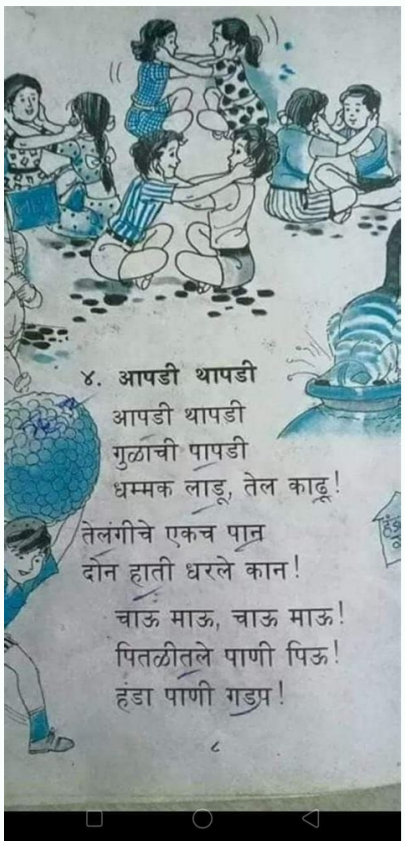 ४. आपडी थापडी
आपडी थापडी
गुळाची पापडी
धम्मक लाडू, तेल काढू!
तेलंगीचे एकच पान
दोन हाती धरले कान!
चाऊ माऊ, चाऊ माऊ!
पितळीतले पाणी पिऊ!
हंडा पाणी गडप!
८